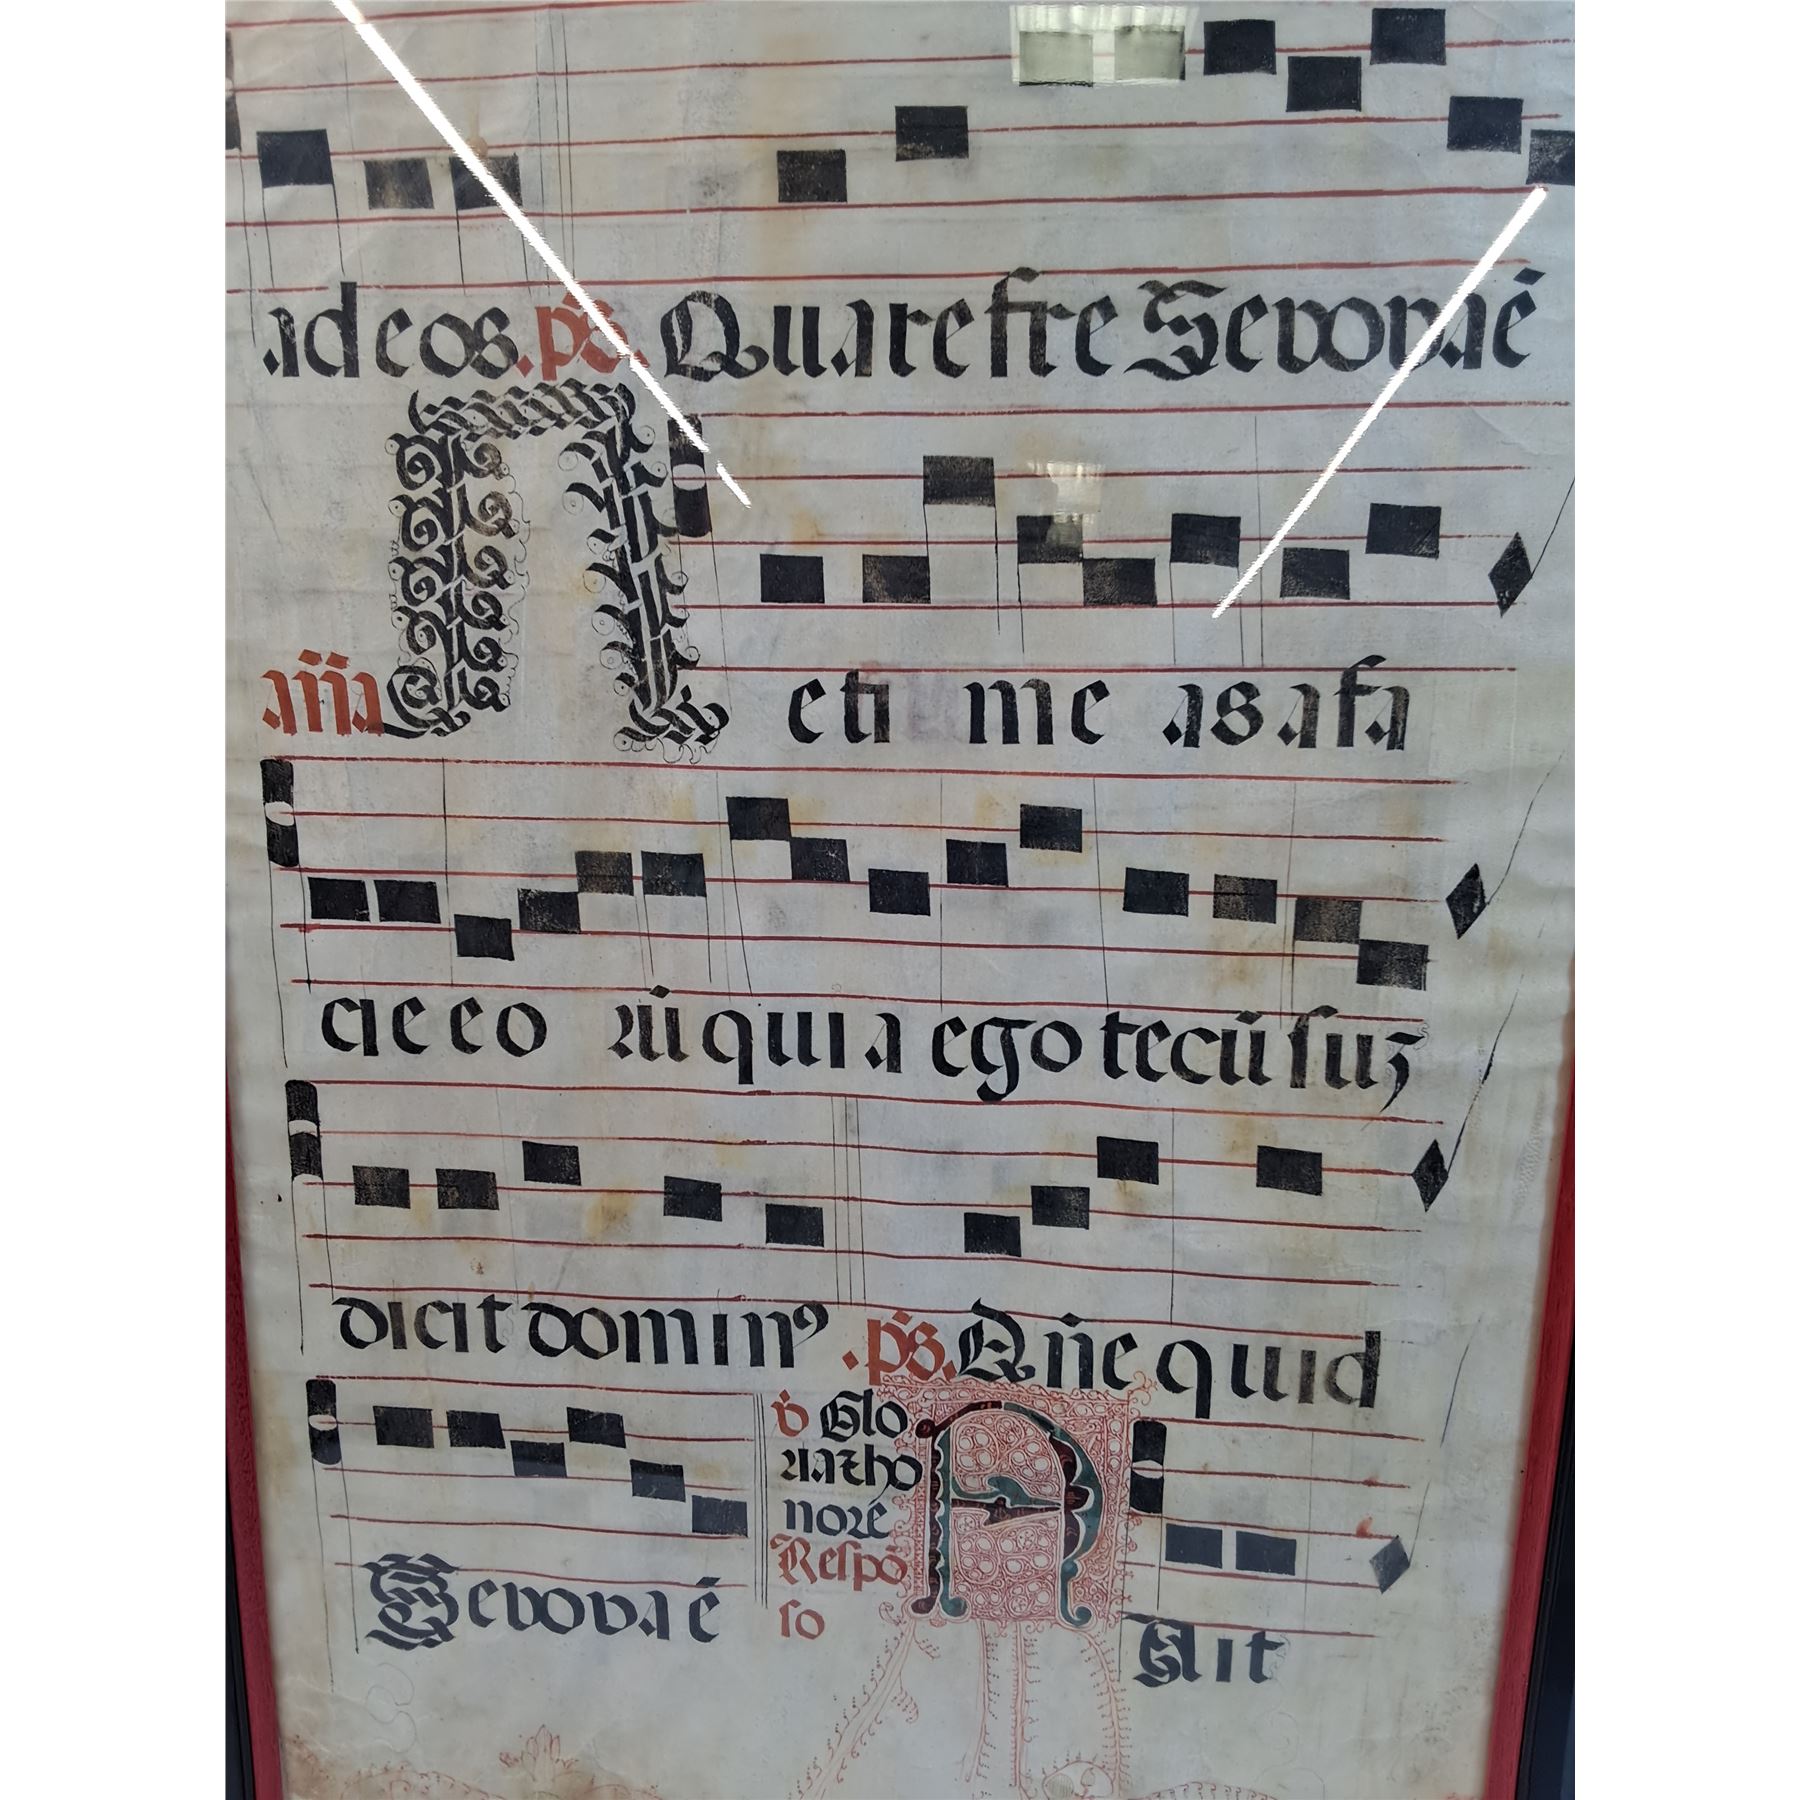 ad eos. ps. Quare fre Sevovaé
aña Ne ti me as a fa
cie eo rũ quia ego tecũ suz
dicit dominꝰ .ps. Dñe quid
Sevovaé
v̇ Glo
ria ⁊ ho
nore
Respõ
so
Ait